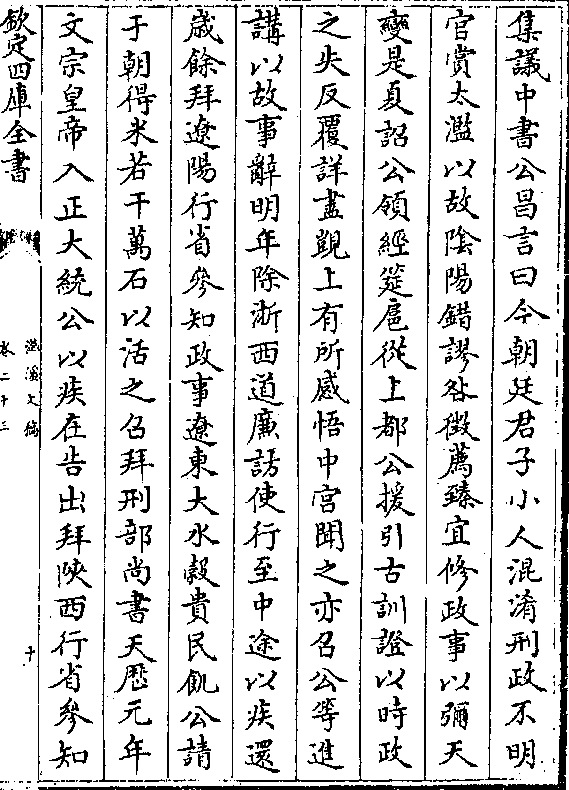 集議中書公昌言曰今朝廷君子小人混淆刑政不明
官賞太濫以故陰陽錯謬咎徵薦臻宜修政事以彌天
變是夏詔公領經筵扈從上都公援引古訓證以時政
之失反覆詳盡覬上有所感悟中宫聞之亦召公等進
講以故事辭明年除浙西道廉訪使行至中途以疾還
歳餘拜遼陽行省參知政事遼東大水榖貴民飢公請
于朝得米若干萬石以活之召拜刑部尚書天厯元年
文宗皇帝入正大統公以疾在告出拜陜西行省參知
欽定四庫全書
滋溪文稿
卷二十三
十